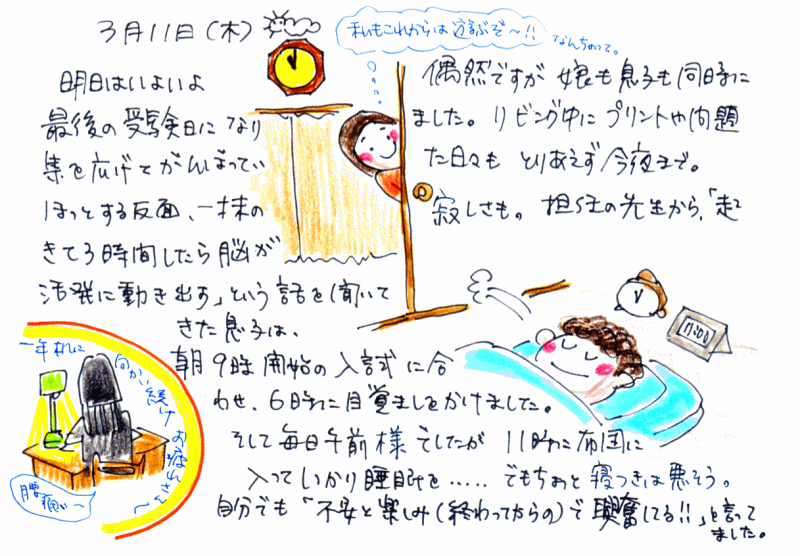 3月11日(木)
私もこれからは遊ぶぞ〜!!
なんちゃって。
明日はいよいよ 偶然ですが 娘も息子も同時に
最後の受験日になり ました。リビング中にプリントや問題
集を広げてがんばってい た日々も とりあえず今夜まで。
ほっとする反面、一抹の 寂しさも。担任の先生から、「起
きて3時間したら脳が
活発に動き出す」という話を聞いて
きた息子は、
朝9時開始の入試に合
わせ、6時に目覚ましをかけました。
そして毎日午前様でしたが 11時に布団に
入ってしっかり睡眠を…… でもちょっと寝つきは悪そう。
自分でも「不安と楽しみ(終わってからの)で興奮してる!!」と言って
ました。
11:00
一年机に
向かい続け
お疲れさん〜
腰痛い〜